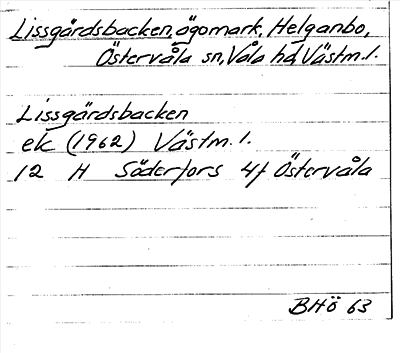 Lissgårdsbacken, ägomark, Helganbo,
Östervåla sn, Våla hd Västm. l.
Lissgärdsbacken
ek (1962) Västm. l.
12 H Söderfors 4f Östervåla
BHö 63